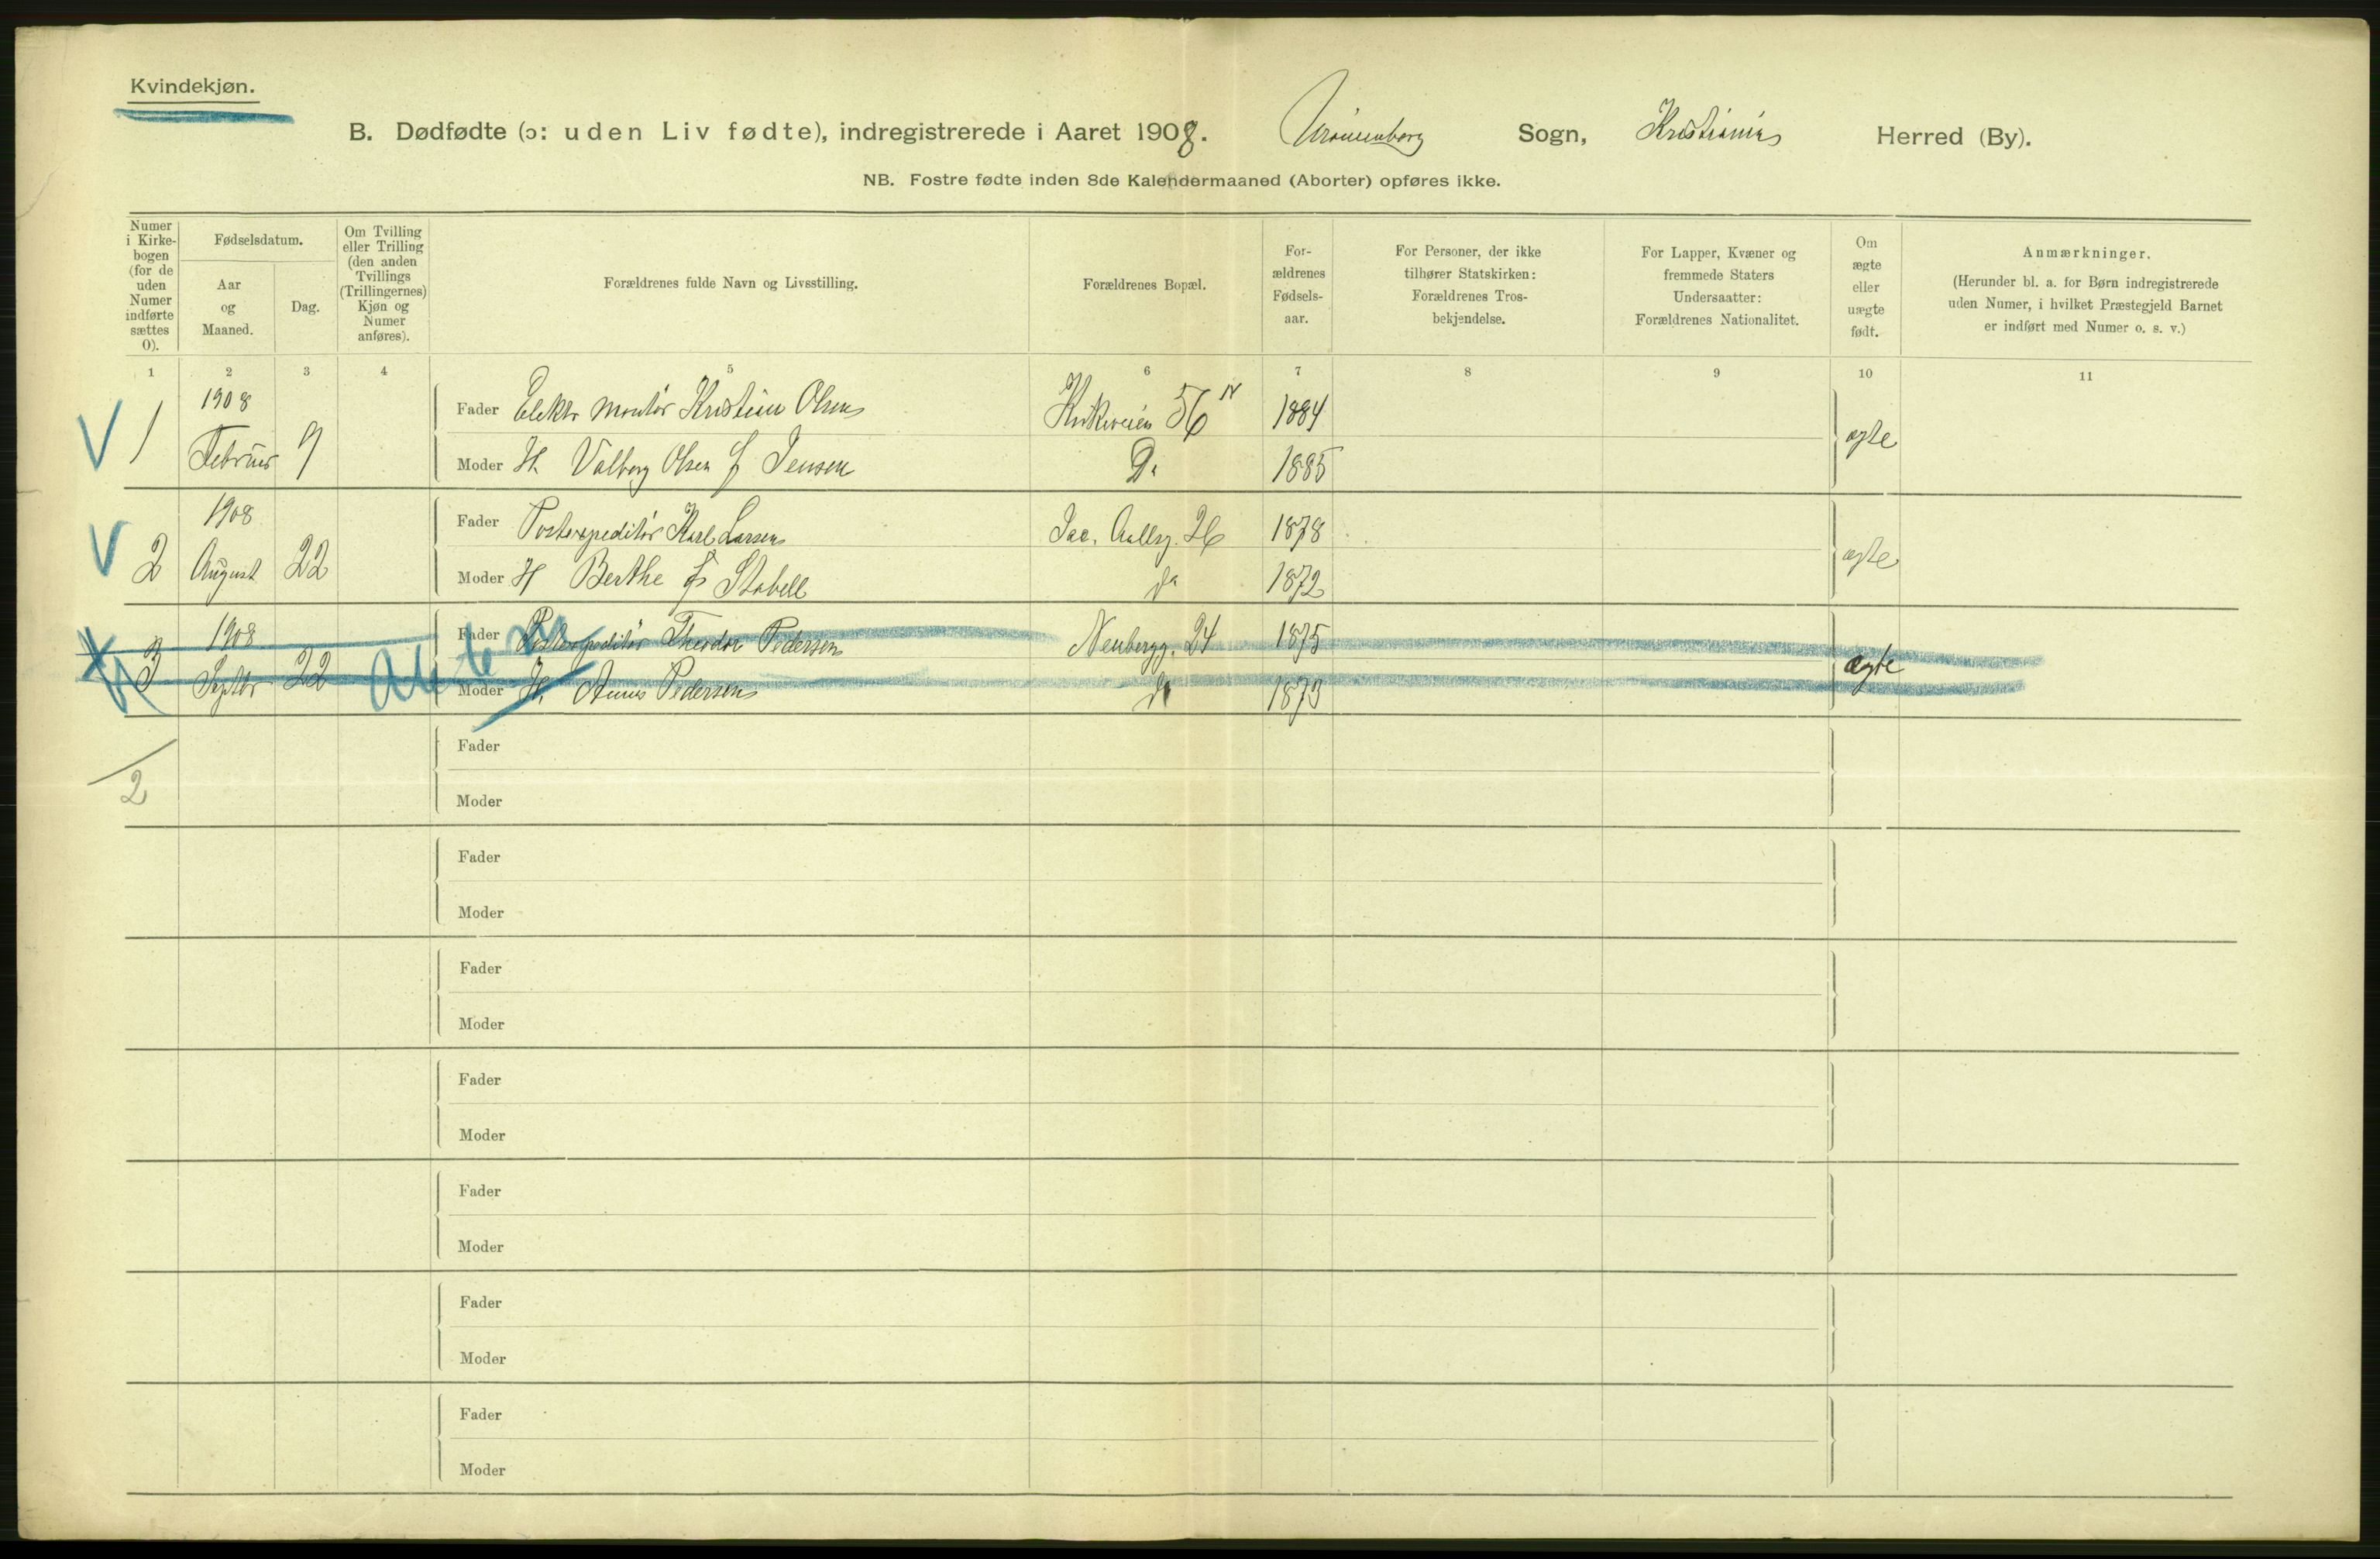 Kvindekjøn.
B. Dødfødte (ɔ: uden Liv fødte), indregistrerede i Aaret 1908. Uranienborg Sogn, Kristiania Herred (By).
NB. Fostre fødte inden 8de Kalendermaaned (Aborter) opføres ikke.
Numer i Kirkebogen (for de uden Numer indførte sættes O).
Fødselsdatum.
Aar og Maaned.
Dag.
Om Tvilling eller Trilling (den anden Tvillings (Trillingernes) Kjøn og Numer anføres).
Forældrenes fulde Navn og Livsstilling.
Forældrenes Bopæl.
Forældrenes Fødselsaar.
For Personer, der ikke tilhører Statskirken: Forældrenes Trosbekjendelse.
For Lapper, Kvæner og fremmede Staters Undersaatter: Forældrenes Nationalitet.
Om ægte eller uægte født.
Anmærkninger.
(Herunder bl. a. for Børn indregistrerede uden Numer, i hvilket Præstegjeld Barnet er indført med Numer o. s. v.)
1 2 3 4 5 6 7 8 9 10 11
V 1 1908 Februar 9 Fader Elektr montör Kristian Olsen Kirkeveien 56 IV 1884 ægte
Moder H. Valborg Olsen f Jensen Do 1885
V 2 1908 August 22 Fader Postexpeditör Karl Larsen Jac. Aallsg. 26 1878 ægte
Moder H Berthe f Stabell do 1872
3 1908 Septbr 22 Fader Postexpeditör Theodor Pedersen Neubergg. 24 1875 ægte
Moder H. Anna Pedersen do 1873
2
Fader
Moder
Fader
Moder
Fader
Moder
Fader
Moder
Fader
Moder
Fader
Moder
Fader
Moder